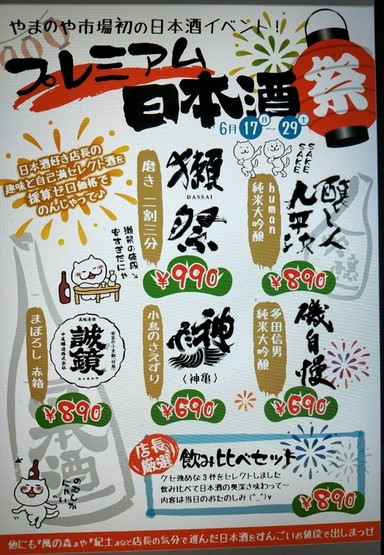 やまのや市場初の日本酒イベント!
プレミアム
日本酒
祭
6月17日~29土
SAKE
SAKE
日本酒好き店長の
趣味と自己満セレクト酒を
採算ゼロ価格で
のんじゃって♪
獺
祭
DASSAI
磨き 二割三分
¥990
醸し人
九平次
human
純米大吟醸
¥890
誠鏡
まぼろし 赤箱
¥890
神亀
〈神亀〉
小鳥のさえずり
¥690
磯自慢
多田信男
純米大吟醸
¥690
店長
厳選
飲み比べセット
クセ強めな3件をセレクトしました
飲み比べて日本酒の奥深さ味わって〜
内容は当日のおたのしみ(^_^)v
¥890
日本酒
他にも『風の森』や『紀土』など店長の気分で進んだ日本酒をすんごいお値段で出しまっせ